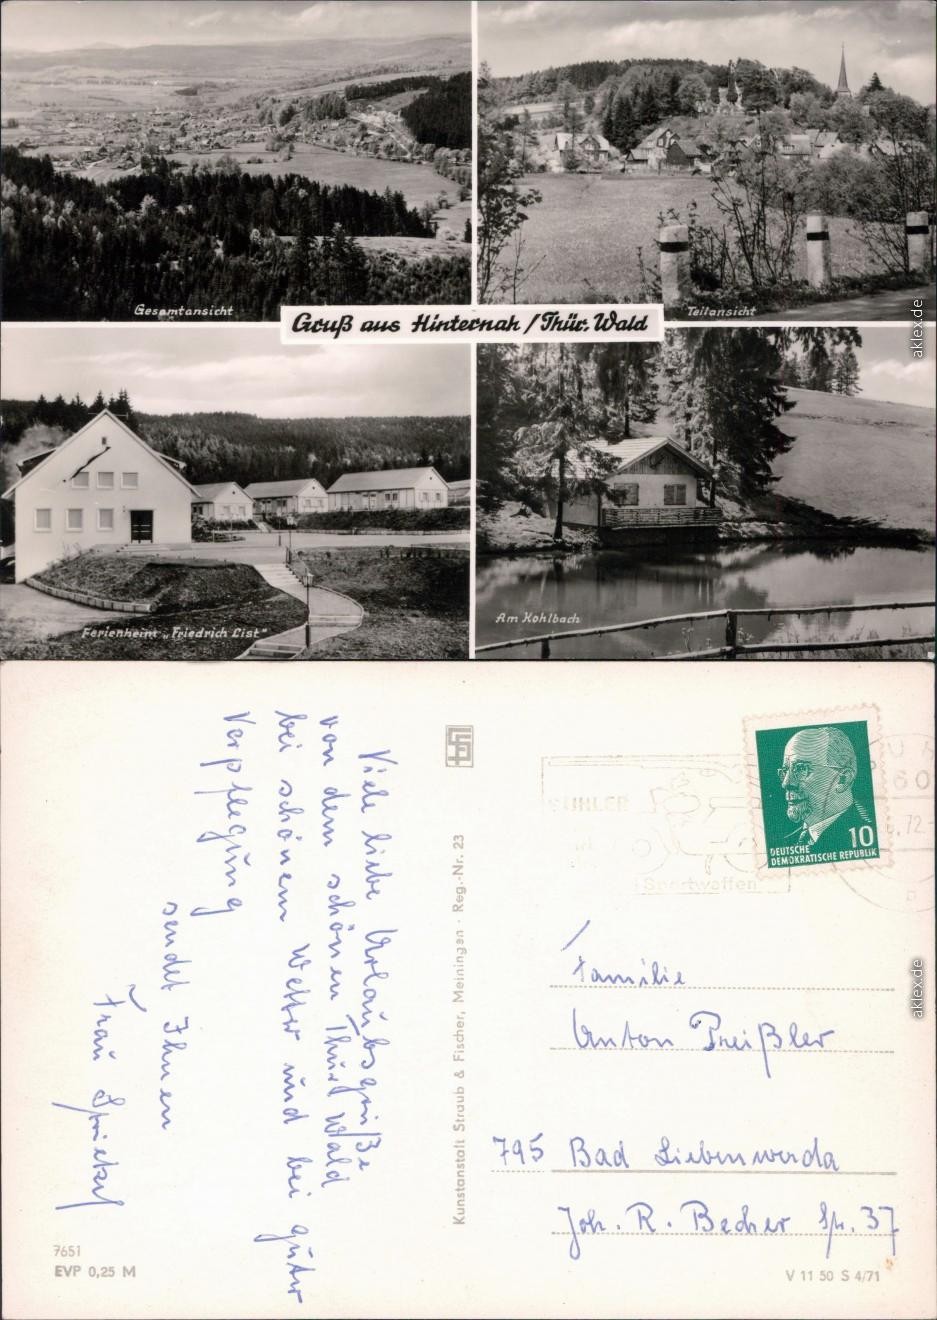 Gesamtansicht
Teilansicht
Gruß aus Hinternah / Thür. Wald
Ferienheim „Friedrich List“
Am Kohlbach
aklex.de
Viele liebe Urlaubsgrüße
von dem schönen Thür Wald
bei schönem Wetter und bei guter
Verpflegung
sendet Ihnen
Frau
7651
EVP 0,25 M
Kunstanstalt Straub & Fischer, Meiningen · Reg.-Nr. 23
SUHLER
Sportwaffen
72
10
DEUTSCHE
DEMOKRATISCHE REPUBLIK
Familie
Anton Preißler
795 Bad Liebenwerda
Joh. R. Becher 37
V 11 50 S 4/71
aklex.de